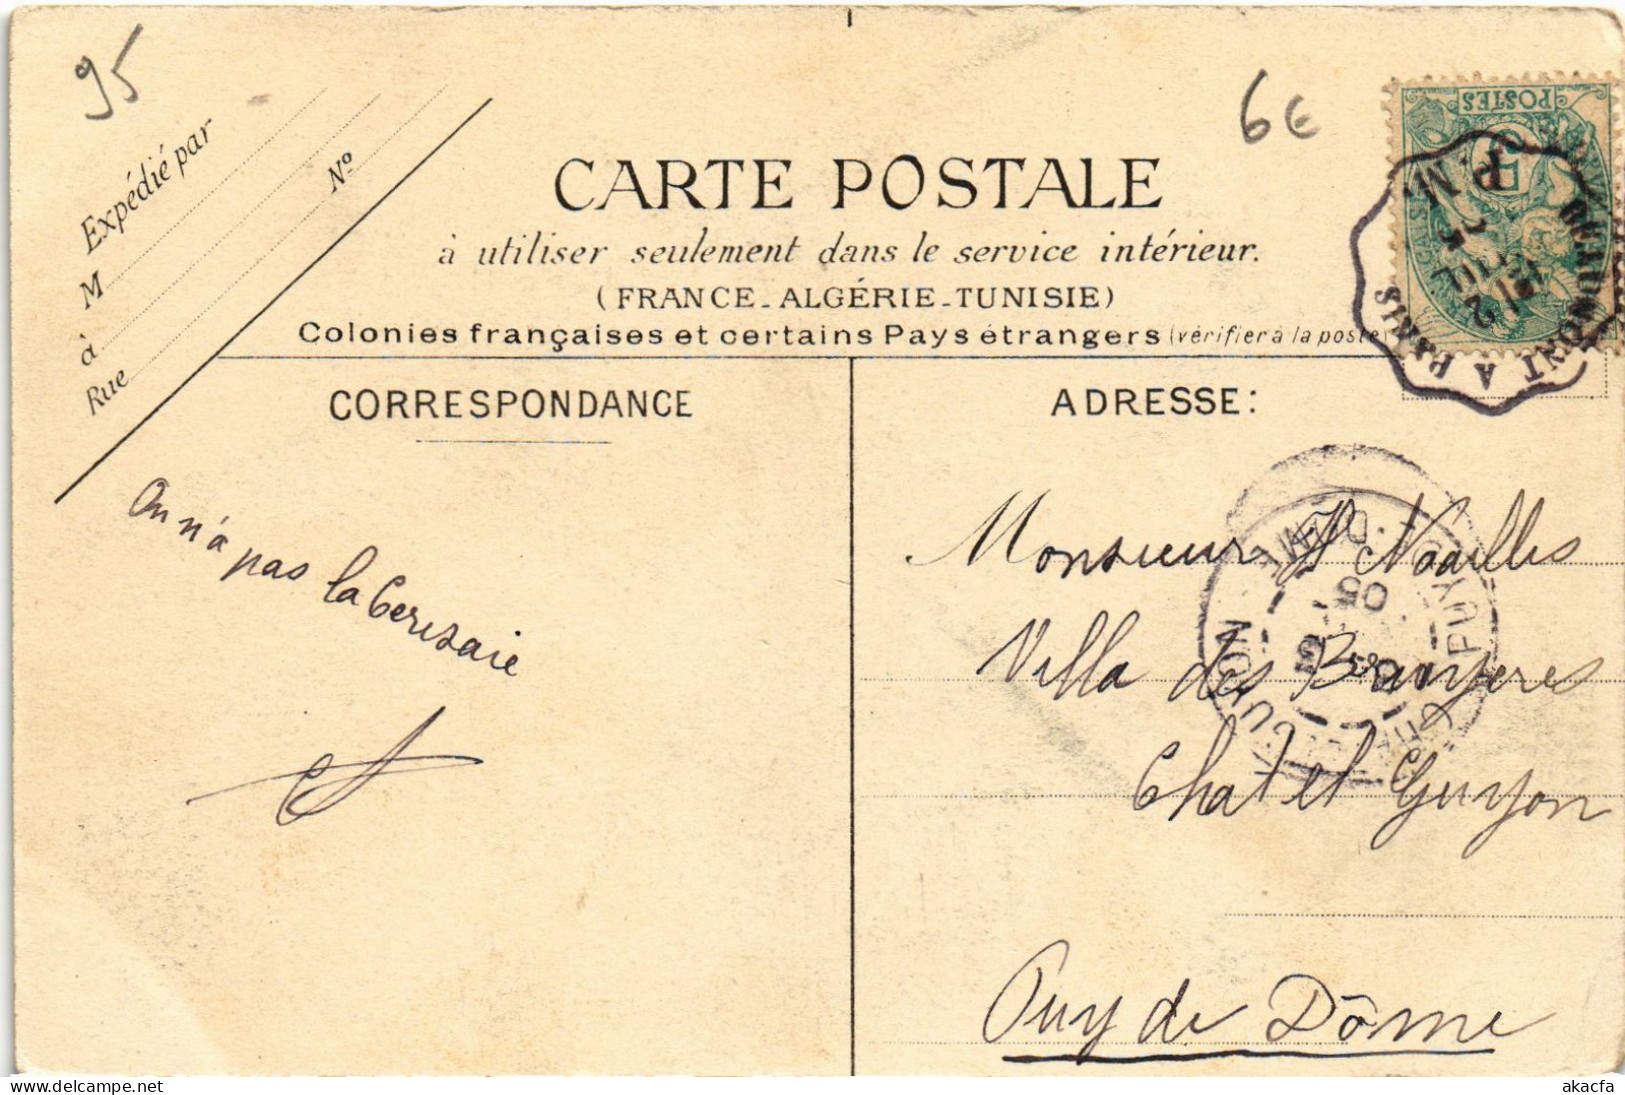 95
6€
Expédié par
M
à
Rue
Nº
CARTE POSTALE
à utiliser seulement dans le service intérieur.
(FRANCE-ALGÉRIE-TUNISIE)
Colonies françaises et certains Pays étrangers (vérifier à la poste)
POSTES
5
BEAUMONT A PARIS
P M.
12
JUIL
05
CORRESPONDANCE
On n'a
pas la Cerisaie
ADRESSE:
Monsieur Noailles
Villa des Bruyeres
Chatel Guyon
Puy de Dôme
PUY-DE-DOME
GUYON
05
akacfa